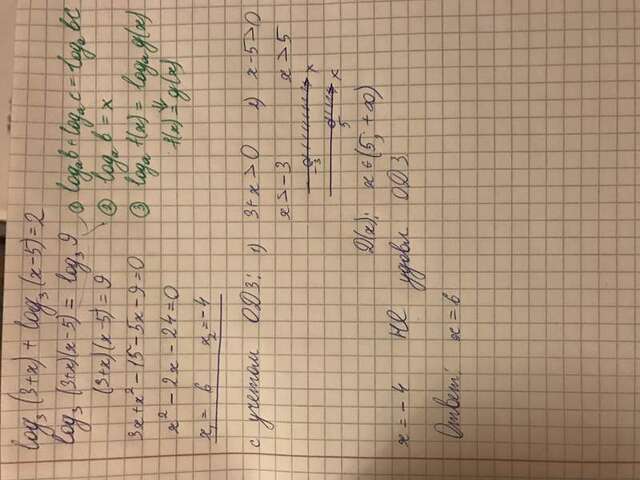 log₃(3+x) + log₃(x-5)=2
log₃(3+x)(x-5) = log₃9
(3+x)(x-5)=9
3x+x²-15-5x-9=0
x²-2x-24=0
x₁= 6 x₂=-4
① logₐb+logₐc=logₐbc
② logₐb=x
③ logₐf(x)=logₐg(x)
⇓
f(x)=g(x)
с учетом ОДЗ: 1) 3+x>0 2) x-5>0
x>-3 x>5
-3 x
5 x
D(x): x∈(5;+∞)
x=-4 не удовл ОДЗ
Ответ: x=6